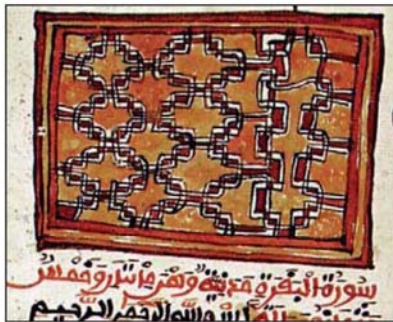 سورة البقرة مدنية وهي مائتان وخمس
بسم الله الرحمن الرحيم